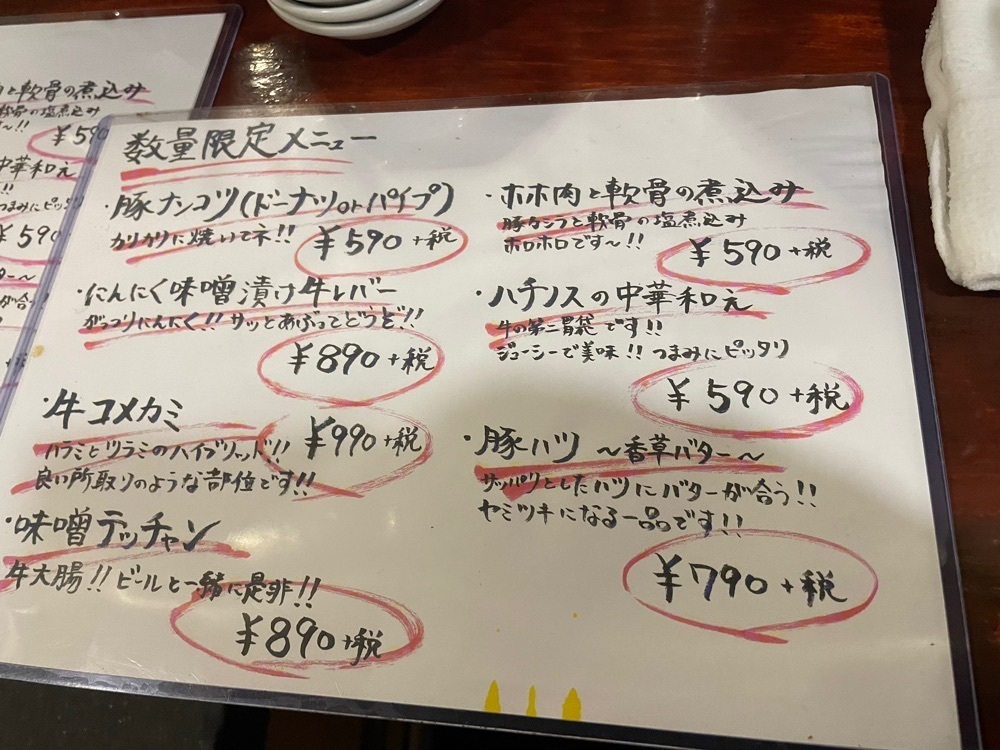 数量限定メニュー
・豚ナンコツ(ドーナツorパイプ)
カリカリに焼いてネ!!
¥590+税
・にんにく味噌漬け牛レバー
がっつりにんにく!!サッとあぶってどうぞ!!
¥890+税
・牛コメカミ
ハラミとツラミのハイブリット!!
¥990+税
良い所取りのような部位です!!
・味噌テッチャン
牛大腸!!ビールと一緒に是非!!
¥890+税
・ホホ肉と軟骨の煮込み
豚カシラと軟骨の塩煮込み
ホロホロです〜!!
¥590+税
・ハチノスの中華和え
牛の第二胃袋です!!
ジューシーで美味!!つまみにピッタリ
¥590+税
・豚ハツ 〜香草バター〜
サッパリとしたハツにバターが合う!!
ヤミツキになる一品です!!
¥790+税
と軟骨の煮込み
軟骨の塩煮込み
〜!!
¥590
中華和え
!!
つまみにピッタリ
¥590